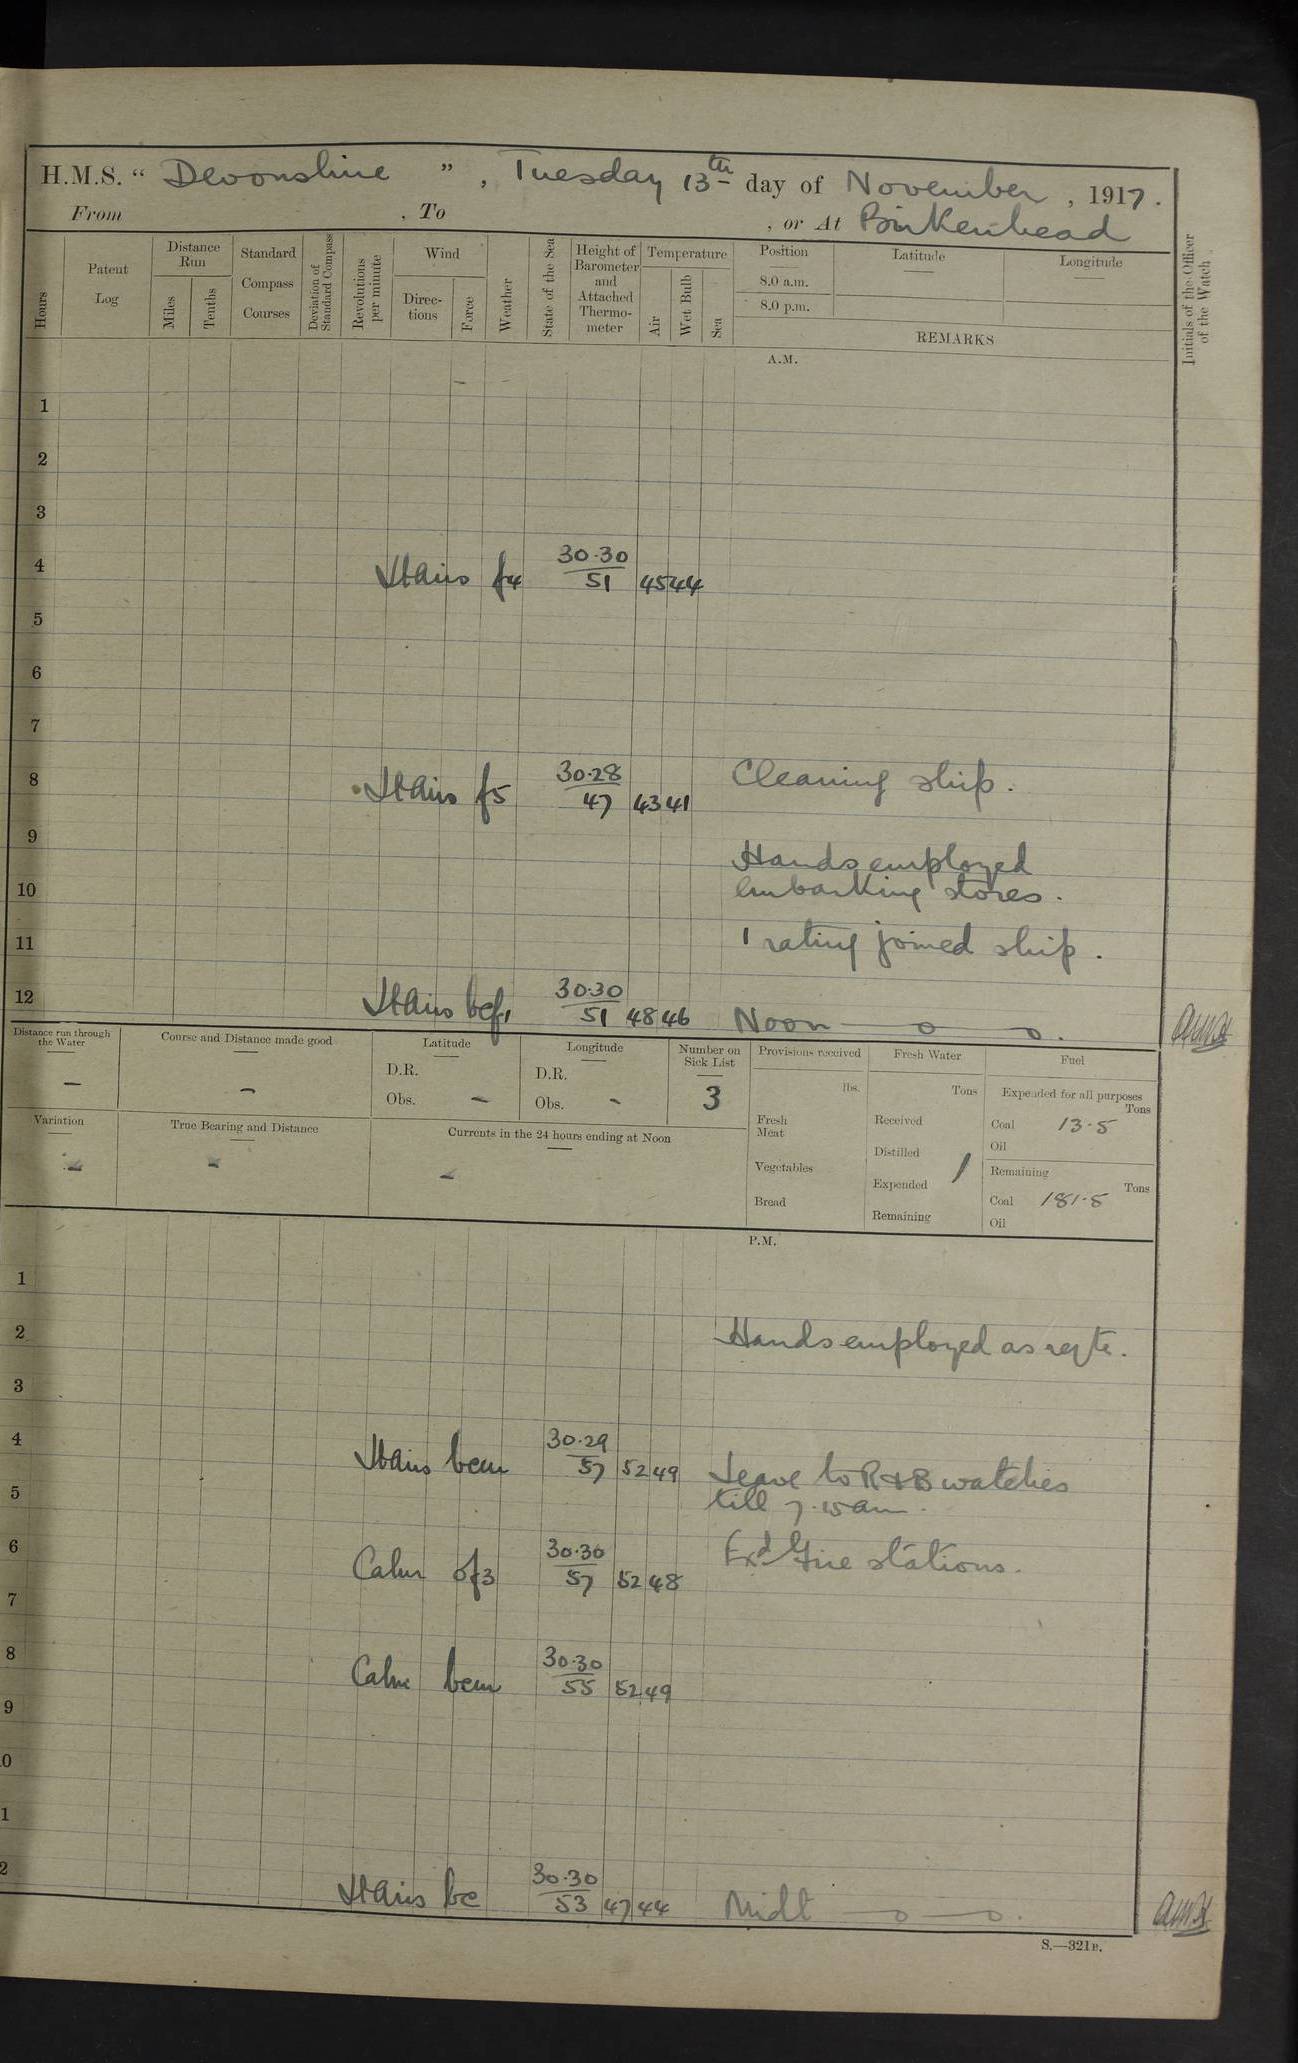 H.M.S. “ Devonshire ” , Tuesday 13th day of November , 1917 .
From , To , or At Birkenhead
Hours
Patent Log
Distance Run
Miles
Tenths
Standard Compass Courses
Deviation of Standard Compass
Revolutions per minute
Wind
Direc-tions
Force
Weather
State of the Sea
Height of Barometer and Attached Thermo-meter
Temperature
Air
Wet Bulb
Sea
Position
8.0 a.m.
8.0 p.m.
Latitude
Longitude
REMARKS
Initials of the Officer of the Watch
A.M.
1
2
3
4 f4 30.30 / 51 45 44
5
6
7
8 f5 30.28 / 47 43 41 Cleaning ship.
9 Hands employed
10 embarking stores.
11 1 rating joined ship.
12 bcf1 30.30 / 51 48 46 Noon — o — o .
Distance run through the Water
—
Course and Distance made good
—
Latitude
D.R.
Obs. —
Longitude
D.R.
Obs. -
Number on Sick List
3
Provisions received
lbs.
Fresh Meat
Vegetables
Bread
Fresh Water
Tons
Received
Distilled
Expended
Remaining
Fuel
Expended for all purposes
Tons
Coal 13.5
Oil
Remaining
Tons
Coal 181.5
Oil
Variation
True Bearing and Distance
Currents in the 24 hours ending at Noon
P.M.
1
2 Hands employed as reqte.
3
4 bcm 30.29 / 57 52 49 Leave to R & B watches
5 till 7.15am.
6 Calm of3 30.30 / 57 52 48 Exd Fire stations.
7
8 Calm bcm 30.30 / 55 52 49
9
0
1
2 bc 30.30 / 53 47 44 Midt — o — o .
S.—321B.